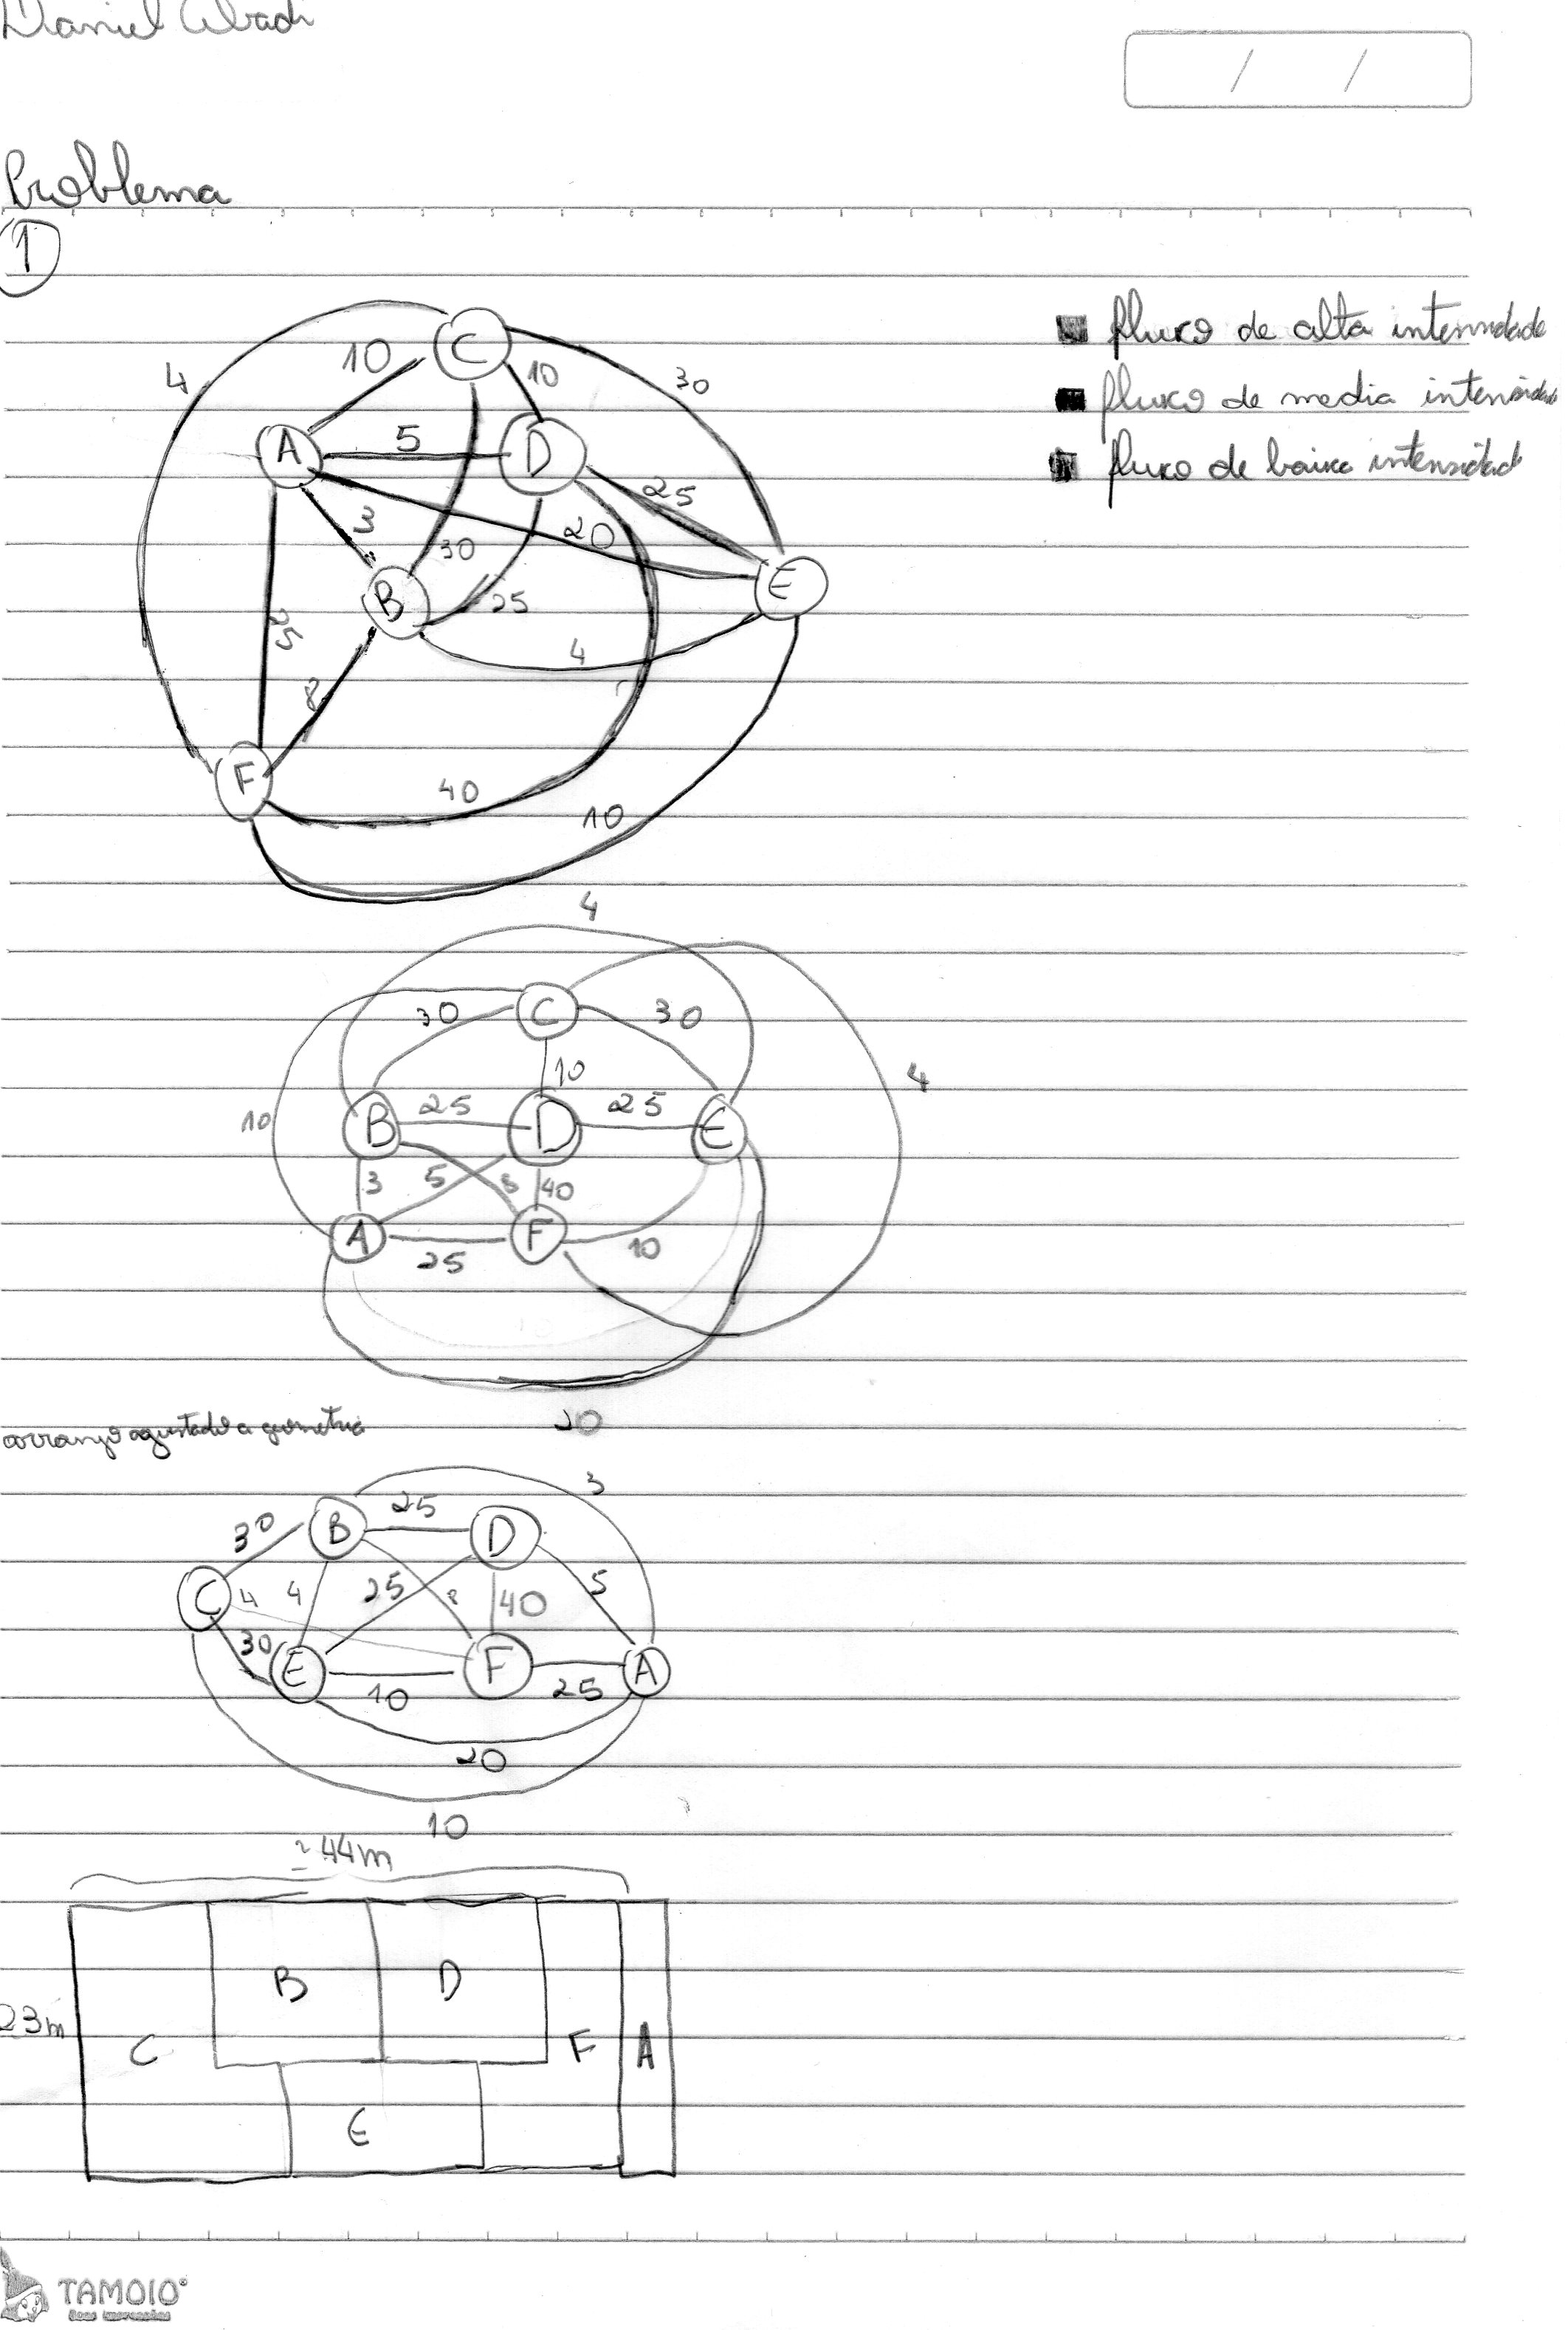 Daniel Abadi
/ /
Problema
1
fluxo de alta intensidade
fluxo de media intensidade
fluxo de baixa intensidad
C
4
10
10
30
A
5
D
25
3
30
20
E
B
25
25
4
8
F
40
10
4
C
30
30
10
4
10
B
25
D
25
E
3
5
8
40
A
F
25
10
20
arranjo ajustado a geometria
3
B
25
D
30
C
4
4
25
8
40
5
30
E
F
A
10
25
20
10
≃ 44m
B
D
23m
C
F
A
E
TAMOIO®
Boas impressões